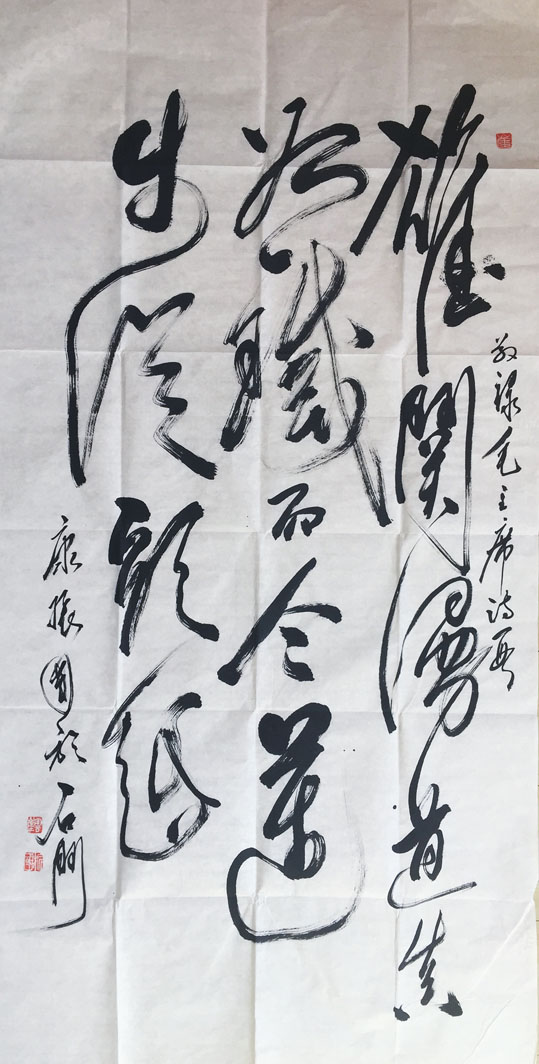 敬録毛主席詩
雄關漫道真
如鐵而今邁
步從頭越
康振於石門